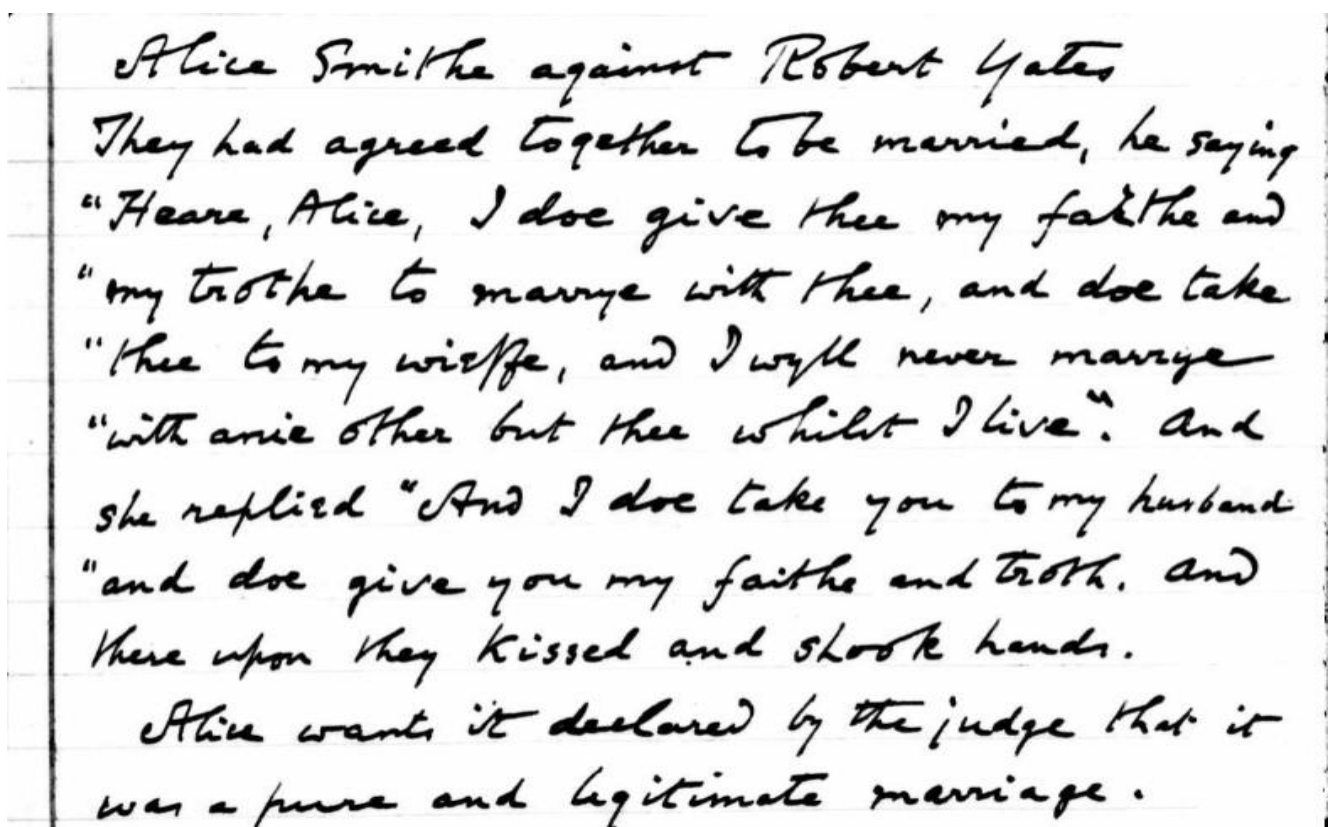 Alice Smithe against Robert Yates
They had agreed together to be married, he saying
"Heare, Alice, I doe give thee my faithe and
"my trothe to marrye with thee, and doe take
"thee to my wieffe, and I wyll never marrye
"with anie other but thee whilst I live". And
she replied "And I doe take you to my husband
"and doe give you my faithe and troth. And
there upon they kissed and shook hands.
Alice wants it declared by the judge that it
was a pure and legitimate marriage.